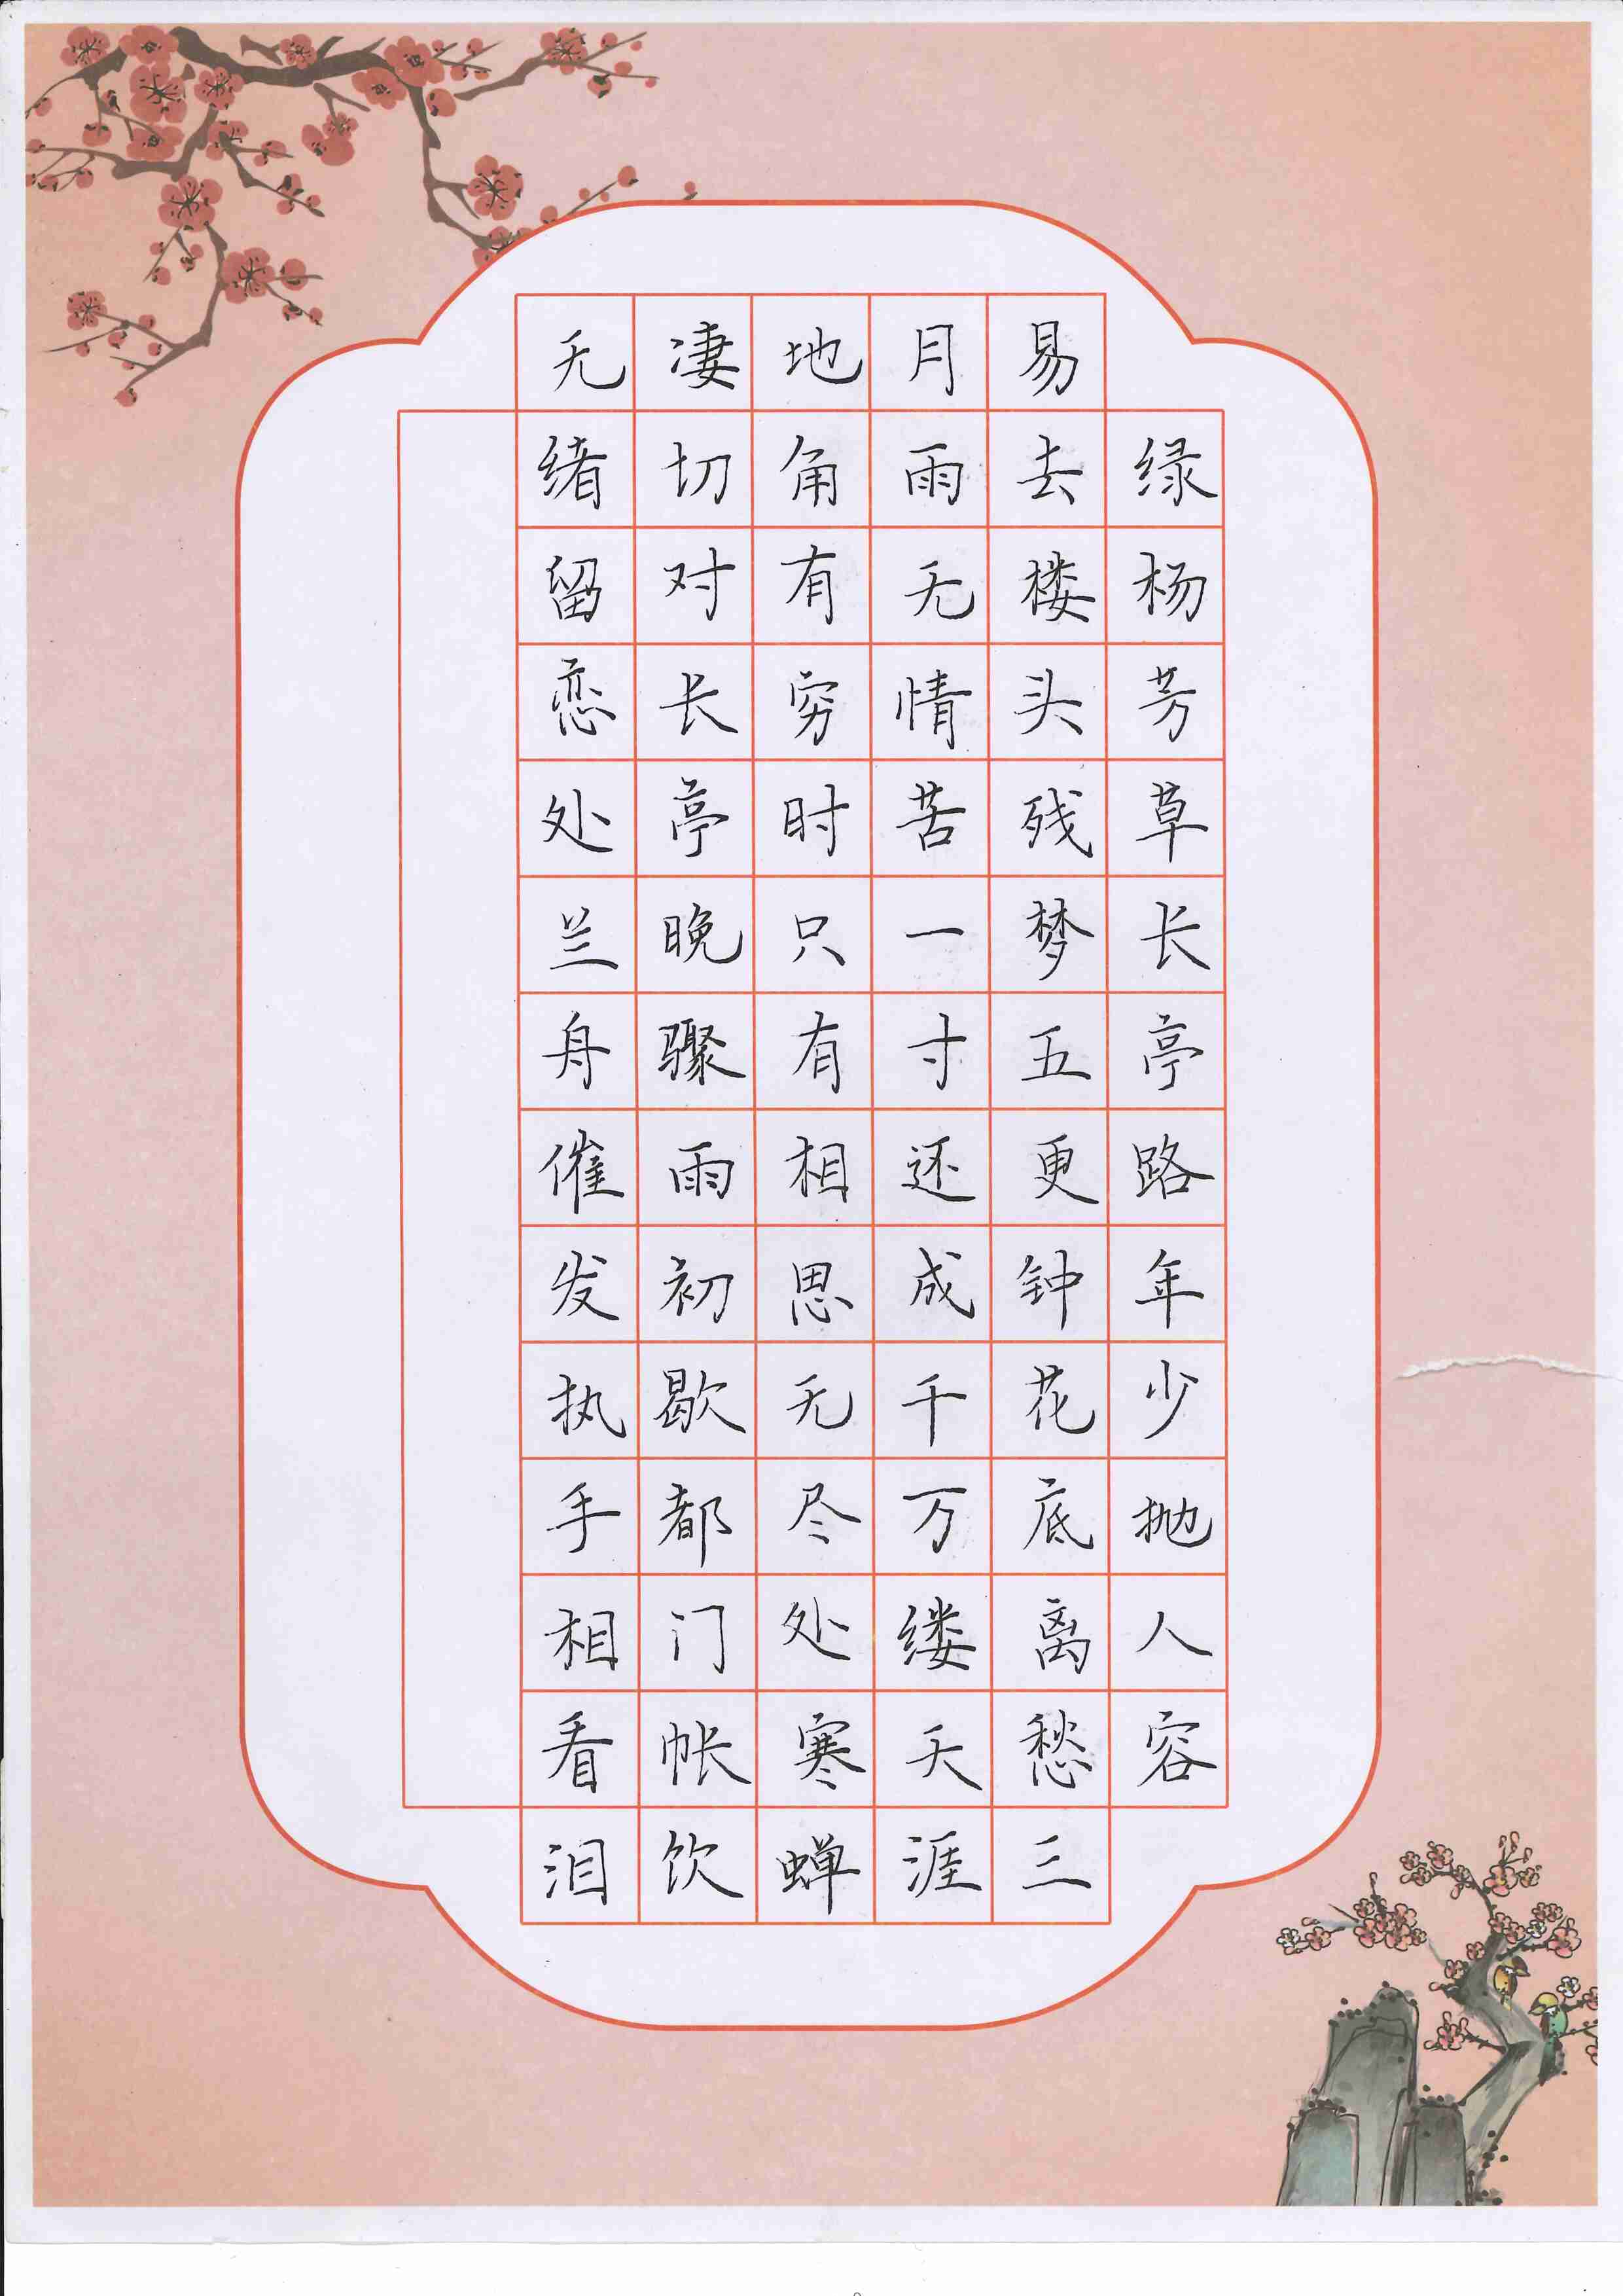 绿杨芳草长亭路年少抛人容
易去楼头残梦五更钟花底离愁三
月雨无情苦一寸还成千万缕天涯
地角有穷时只有相思无尽处寒蝉
凄切对长亭晚骤雨初歇都门帐饮
无绪留恋处兰舟催发执手相看泪